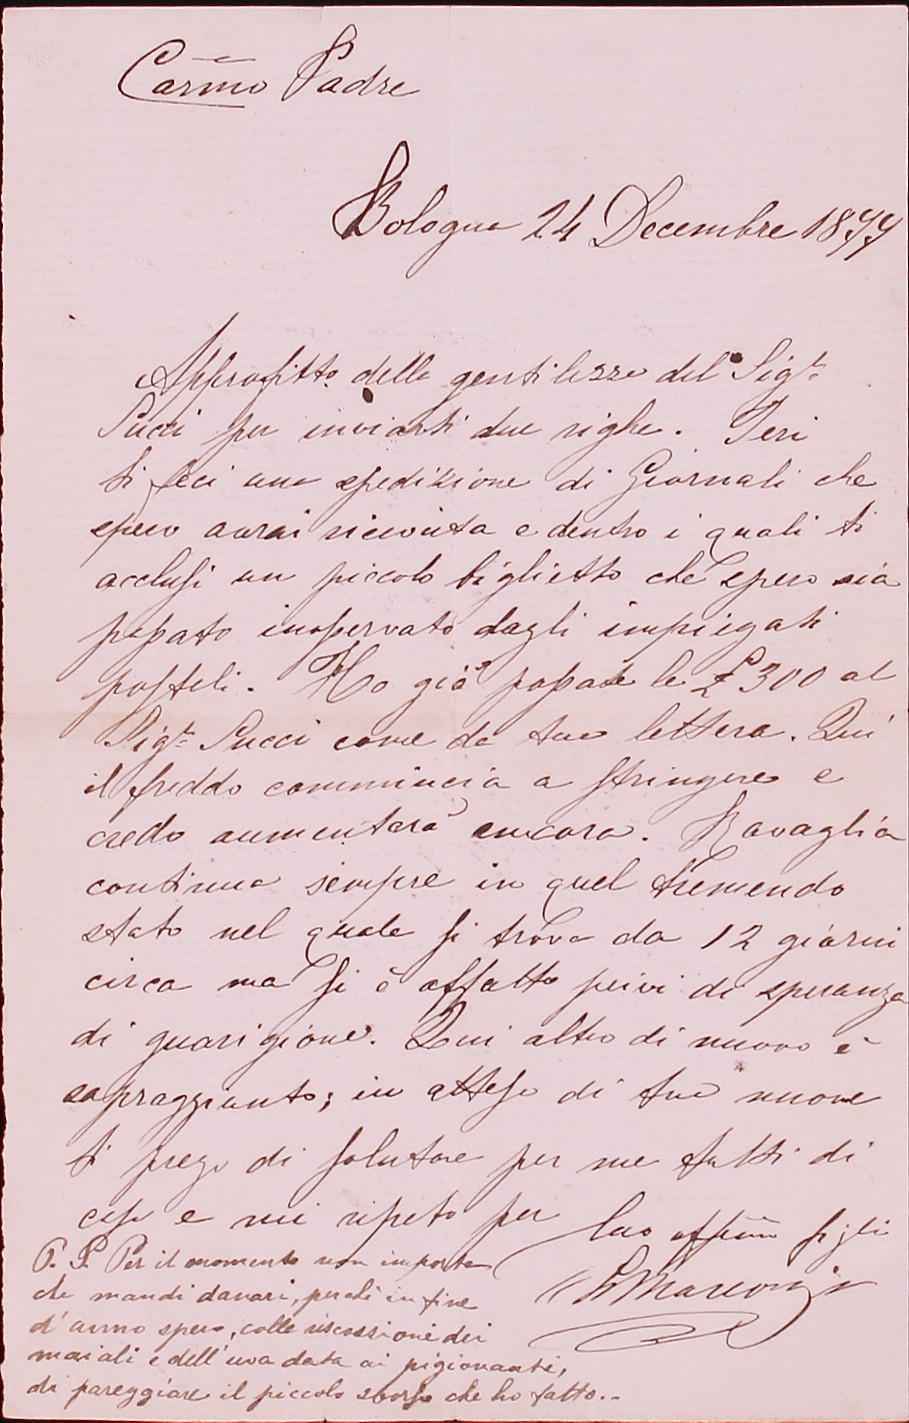 Carmo Padre
Bologna 24 Decembre 1877
Approfitto della gentilezza del Sigr
Pucci per inviarti due righe. Ieri
ti feci una spedizione di Giornali che
spero avrai ricevuta e dentro i quali ti
acclusi un piccolo biglietto che spero sia
passato inosservato dagli impiegati
postali. Ho già passate le £ 300 al
Sigr Pucci come da tua lettera. Qui
il freddo commincia a stringere e
credo aumenterà ancora. Ravaglia
continua sempre in quel tremendo
stato nel quale si trova da 12 giorni
circa ma si è affatto privi di speranza
di guarigione. Qui altro di nuovo è
sopraggiunto; in attesa di tue nuove
ti prego di salutare per me tutti di
casa e mi ripeto per
tuo affmo figli
Marconi
P. S. Per il momento non importa
che mandi danari, perchè in fine
d'anno spero, colle riscossioni dei
maiali e dell'uva data ai pigionanti,
di pareggiare il piccolo sborso che ho fatto.-